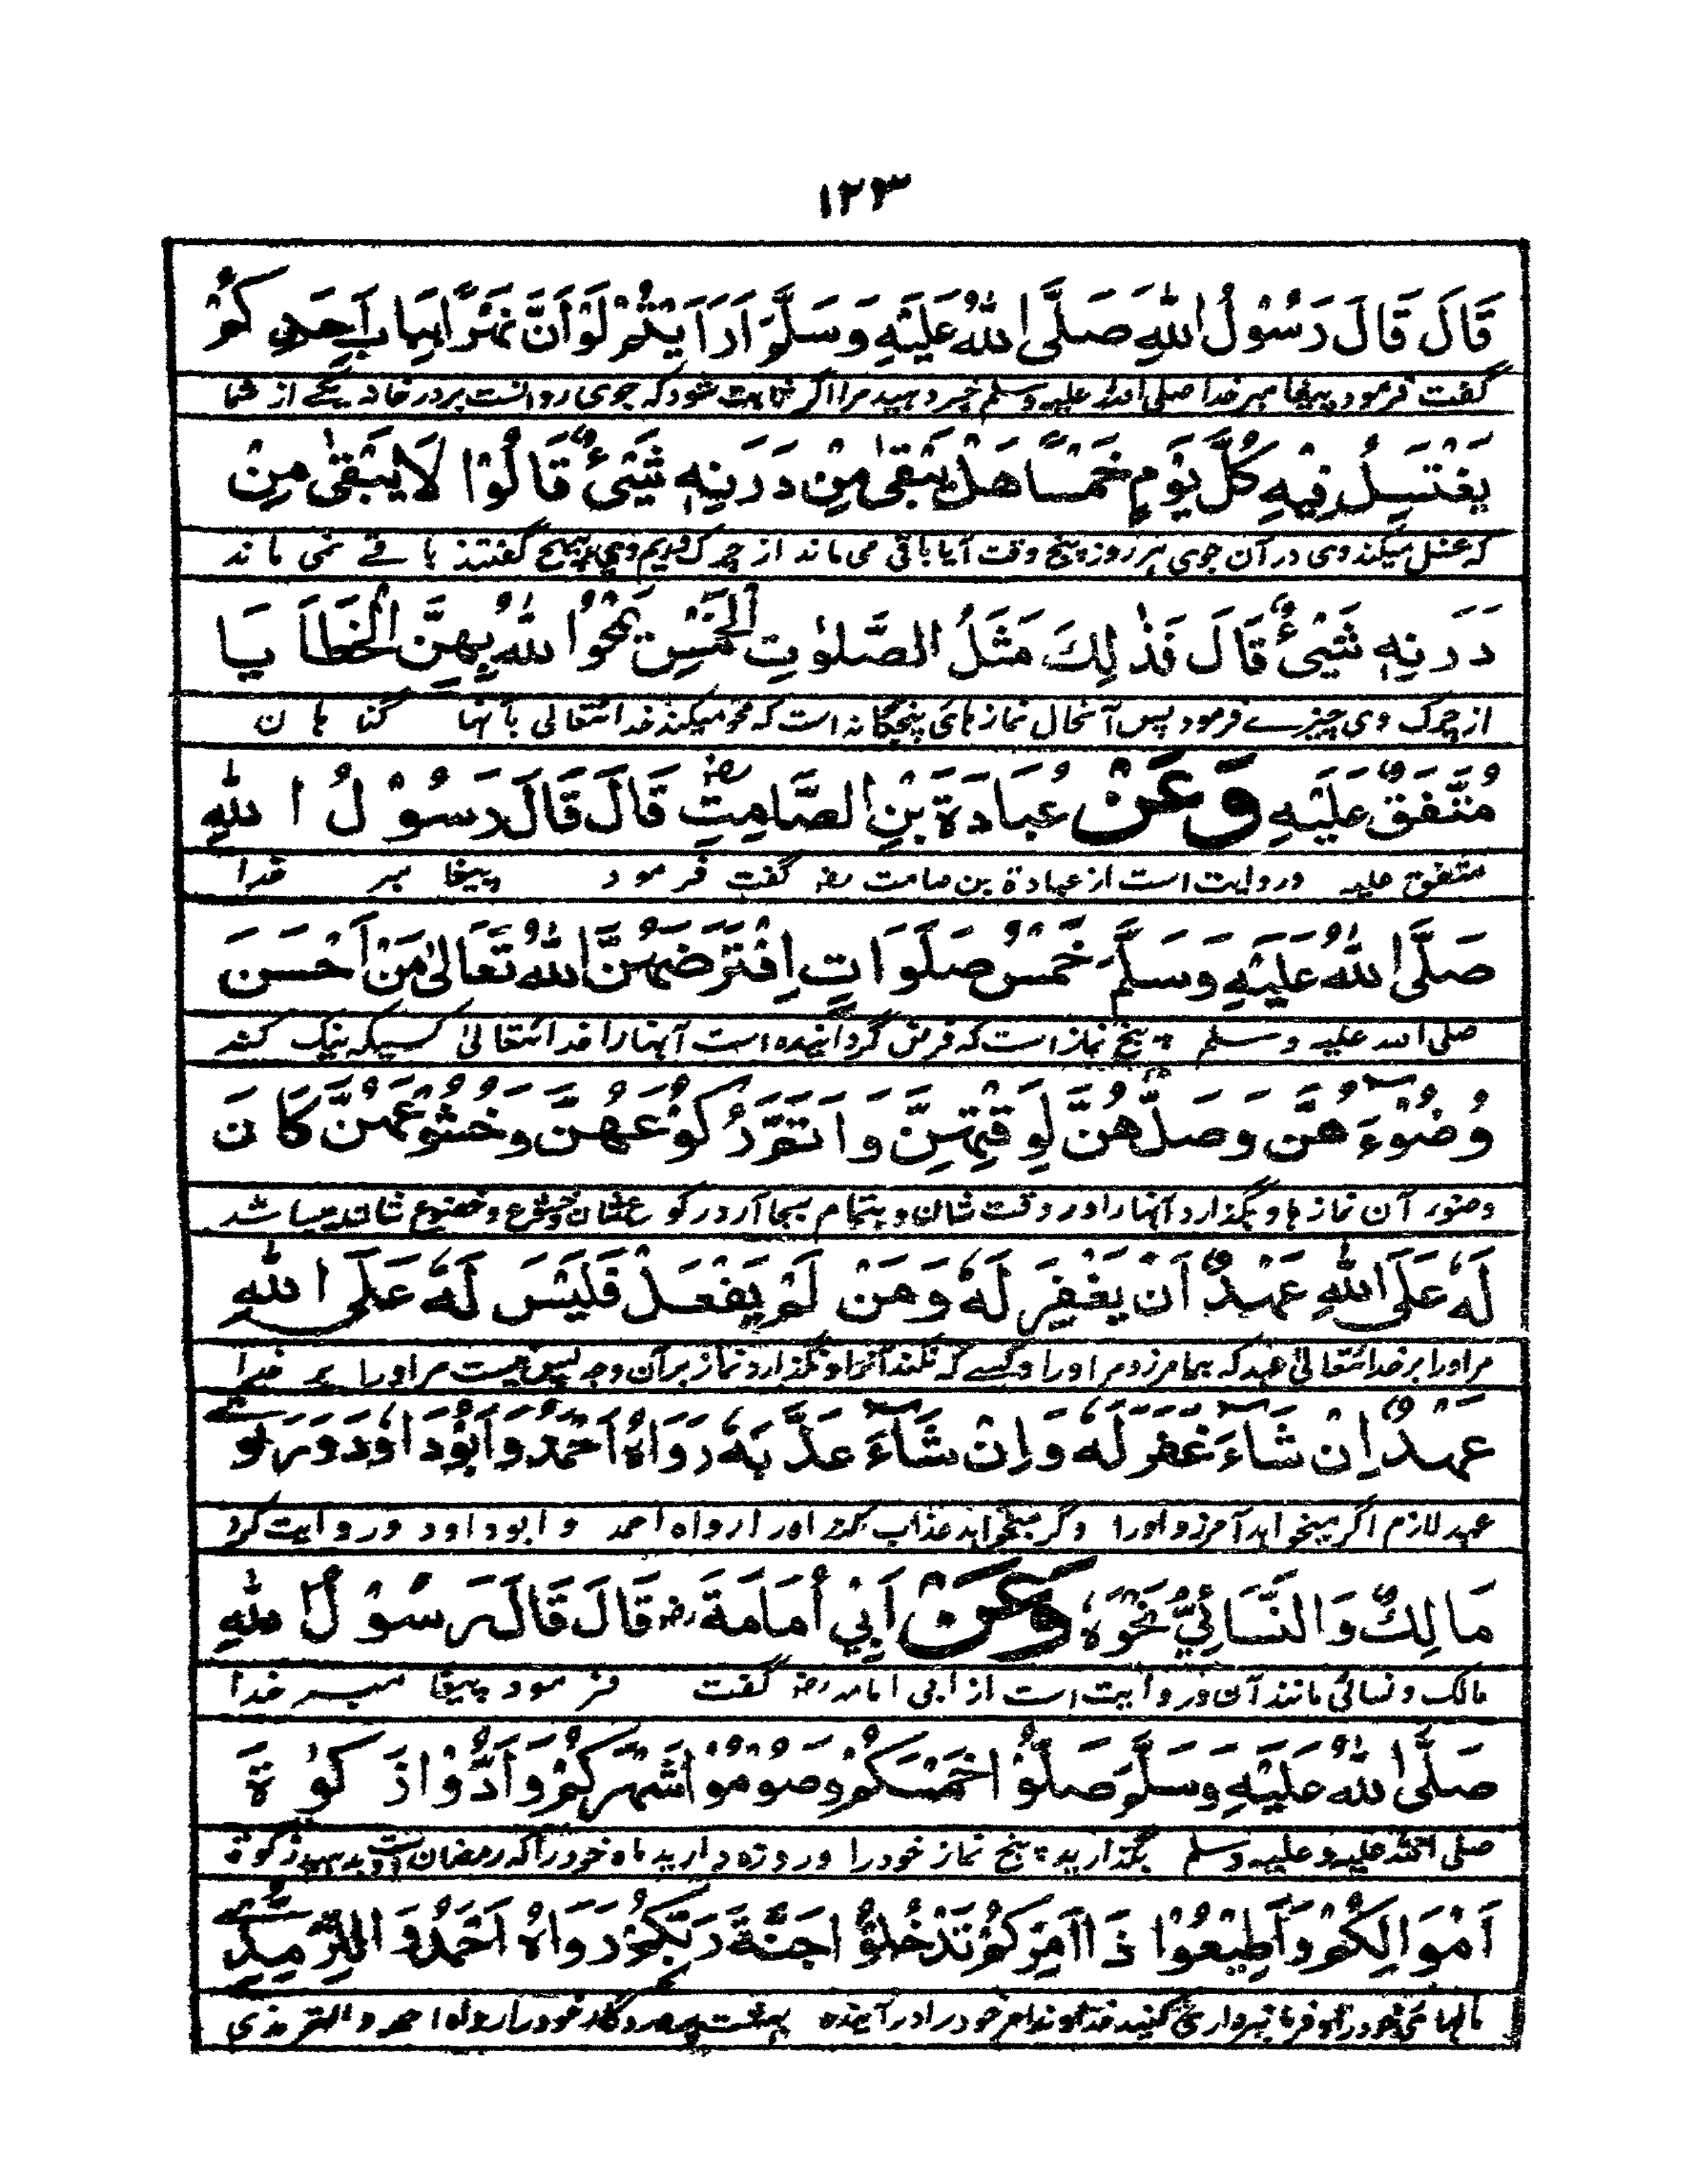 ١٢٣
قَالَ قَالَ رَسُوْلُ اللهِ صَلَّى اللهُ عَلَيْهِ وَسَلَّمَ اَرَاَيْتُمْ لَوْ اَنَّ نَهْرًا بِبَابِ اَحَدِكُمْ
گفت فرمود پیغامبر خدا صلی الله علیه وسلم خبر دهید مرا اگر ثابت شود که جوی روانست بر در خانه یکے از شما
يَغْتَسِلُ فِيْهِ كُلَّ يَوْمٍ خَمْسًا هَلْ يَبْقٰى مِنْ دَرَنِهٖ شَيْئٌ قَالُوْا لَا يَبْقٰى مِنْ
که غسل میکند وی در آن جوی هر روز پنج وقت آیا باقی می ماند از چرک وی هیچ گفتند باقے نمی ماند
دَرَنِهٖ شَيْئٌ قَالَ فَذٰلِكَ مَثَلُ الصَّلٰوتِ الْخَمْسِ يَمْحُوا اللهُ بِهِنَّ الْخَطَايَا
از چرک وی چیزے فرمود پس آنحال نمازهای پنجگانه است که محو میکند خدائتعالی بآنها گناهان
مُتَّفَقٌ عَلَيْهِ وَعَنْ عُبَادَةَ بْنِ الصَّامِتِ رضه قَالَ قَالَ رَسُوْلُ اللهِ
متفق علیه وروایت است از عبادة بن صامت رضه گفت فرمود پیغامبر خدا
صَلَّى اللهُ عَلَيْهِ وَسَلَّمَ خَمْسُ صَلَوَاتٍ اِفْتَرَضَهُنَّ اللهُ تَعَالٰى مَنْ اَحْسَنَ
صلی الله علیه وسلم پنج نماز است که فرض گردانیده است آنها را خدائتعالیٰ کسیکه نیک کند
وُضُوْءَهُنَّ وَصَلَّهُنَّ لِوَقْتِهِنَّ وَاَتَمَّ رُكُوْعَهُنَّ وَخُشُوْعَهُنَّ كَانَ
وضوء آن نمازها وبگذارد آنها را در وقت شان وبتمام بجا آرد رکوع شان وخشوع وخضوع شان میباشد
لَهٗ عَلَى اللهِ عَهْدٌ اَنْ يَغْفِرَ لَهٗ وَمَنْ لَمْ يَفْعَلْ فَلَيْسَ لَهٗ عَلَى اللهِ
مر او را بر خدائتعالیٰ عهد که بیامرزد مر او را وکسے که نکند آنرا ونگذارد نماز بر آن وجه پس نیست مر او را بر خدا
عَهْدٌ اِنْ شَاءَ غَفَرَ لَهٗ وَاِنْ شَاءَ عَذَّبَهٗ رَوَاهُ اَحْمَدُ وَاَبُوْدَاوٗدَ وَرَوٰى
عهد لازم اگر میخواهد آمرزد او را وگر میخواهد عذاب کند او را رواه احمد وابوداود وروایت کرد
مَالِكٌ وَالنَّسَائِيُّ نَحْوَهٗ وَعَنْ اَبِيْ اُمَامَةَ رضه قَالَ قَالَ رَسُوْلُ اللهِ
مالک ونسائی مانند آن وروایت است از ابی امامه رضه گفت فرمود پیغامبر خدا
صَلَّى اللهُ عَلَيْهِ وَسَلَّمَ صَلُّوْا خَمْسَكُمْ وَصُوْمُوْا شَهْرَكُمْ وَاَدُّوْا زَكٰوةَ
صلی الله علیه وعلیه وسلم بگذارید پنج نماز خود را وروزه دارید ماه خود را که رمضان است وبدهید زکوة
اَمْوَالِكُمْ وَاَطِيْعُوْا ذَا اَمْرِكُمْ تَدْخُلُوْا جَنَّةَ رَبِّكُمْ رَوَاهُ اَحْمَدُ وَالتِّرْمِذِيُّ
مالهای خود را وفرمانبرداری کنید خداوند امر خود را در آینده بهشت پروردگار خود را رواه احمد والترمذی